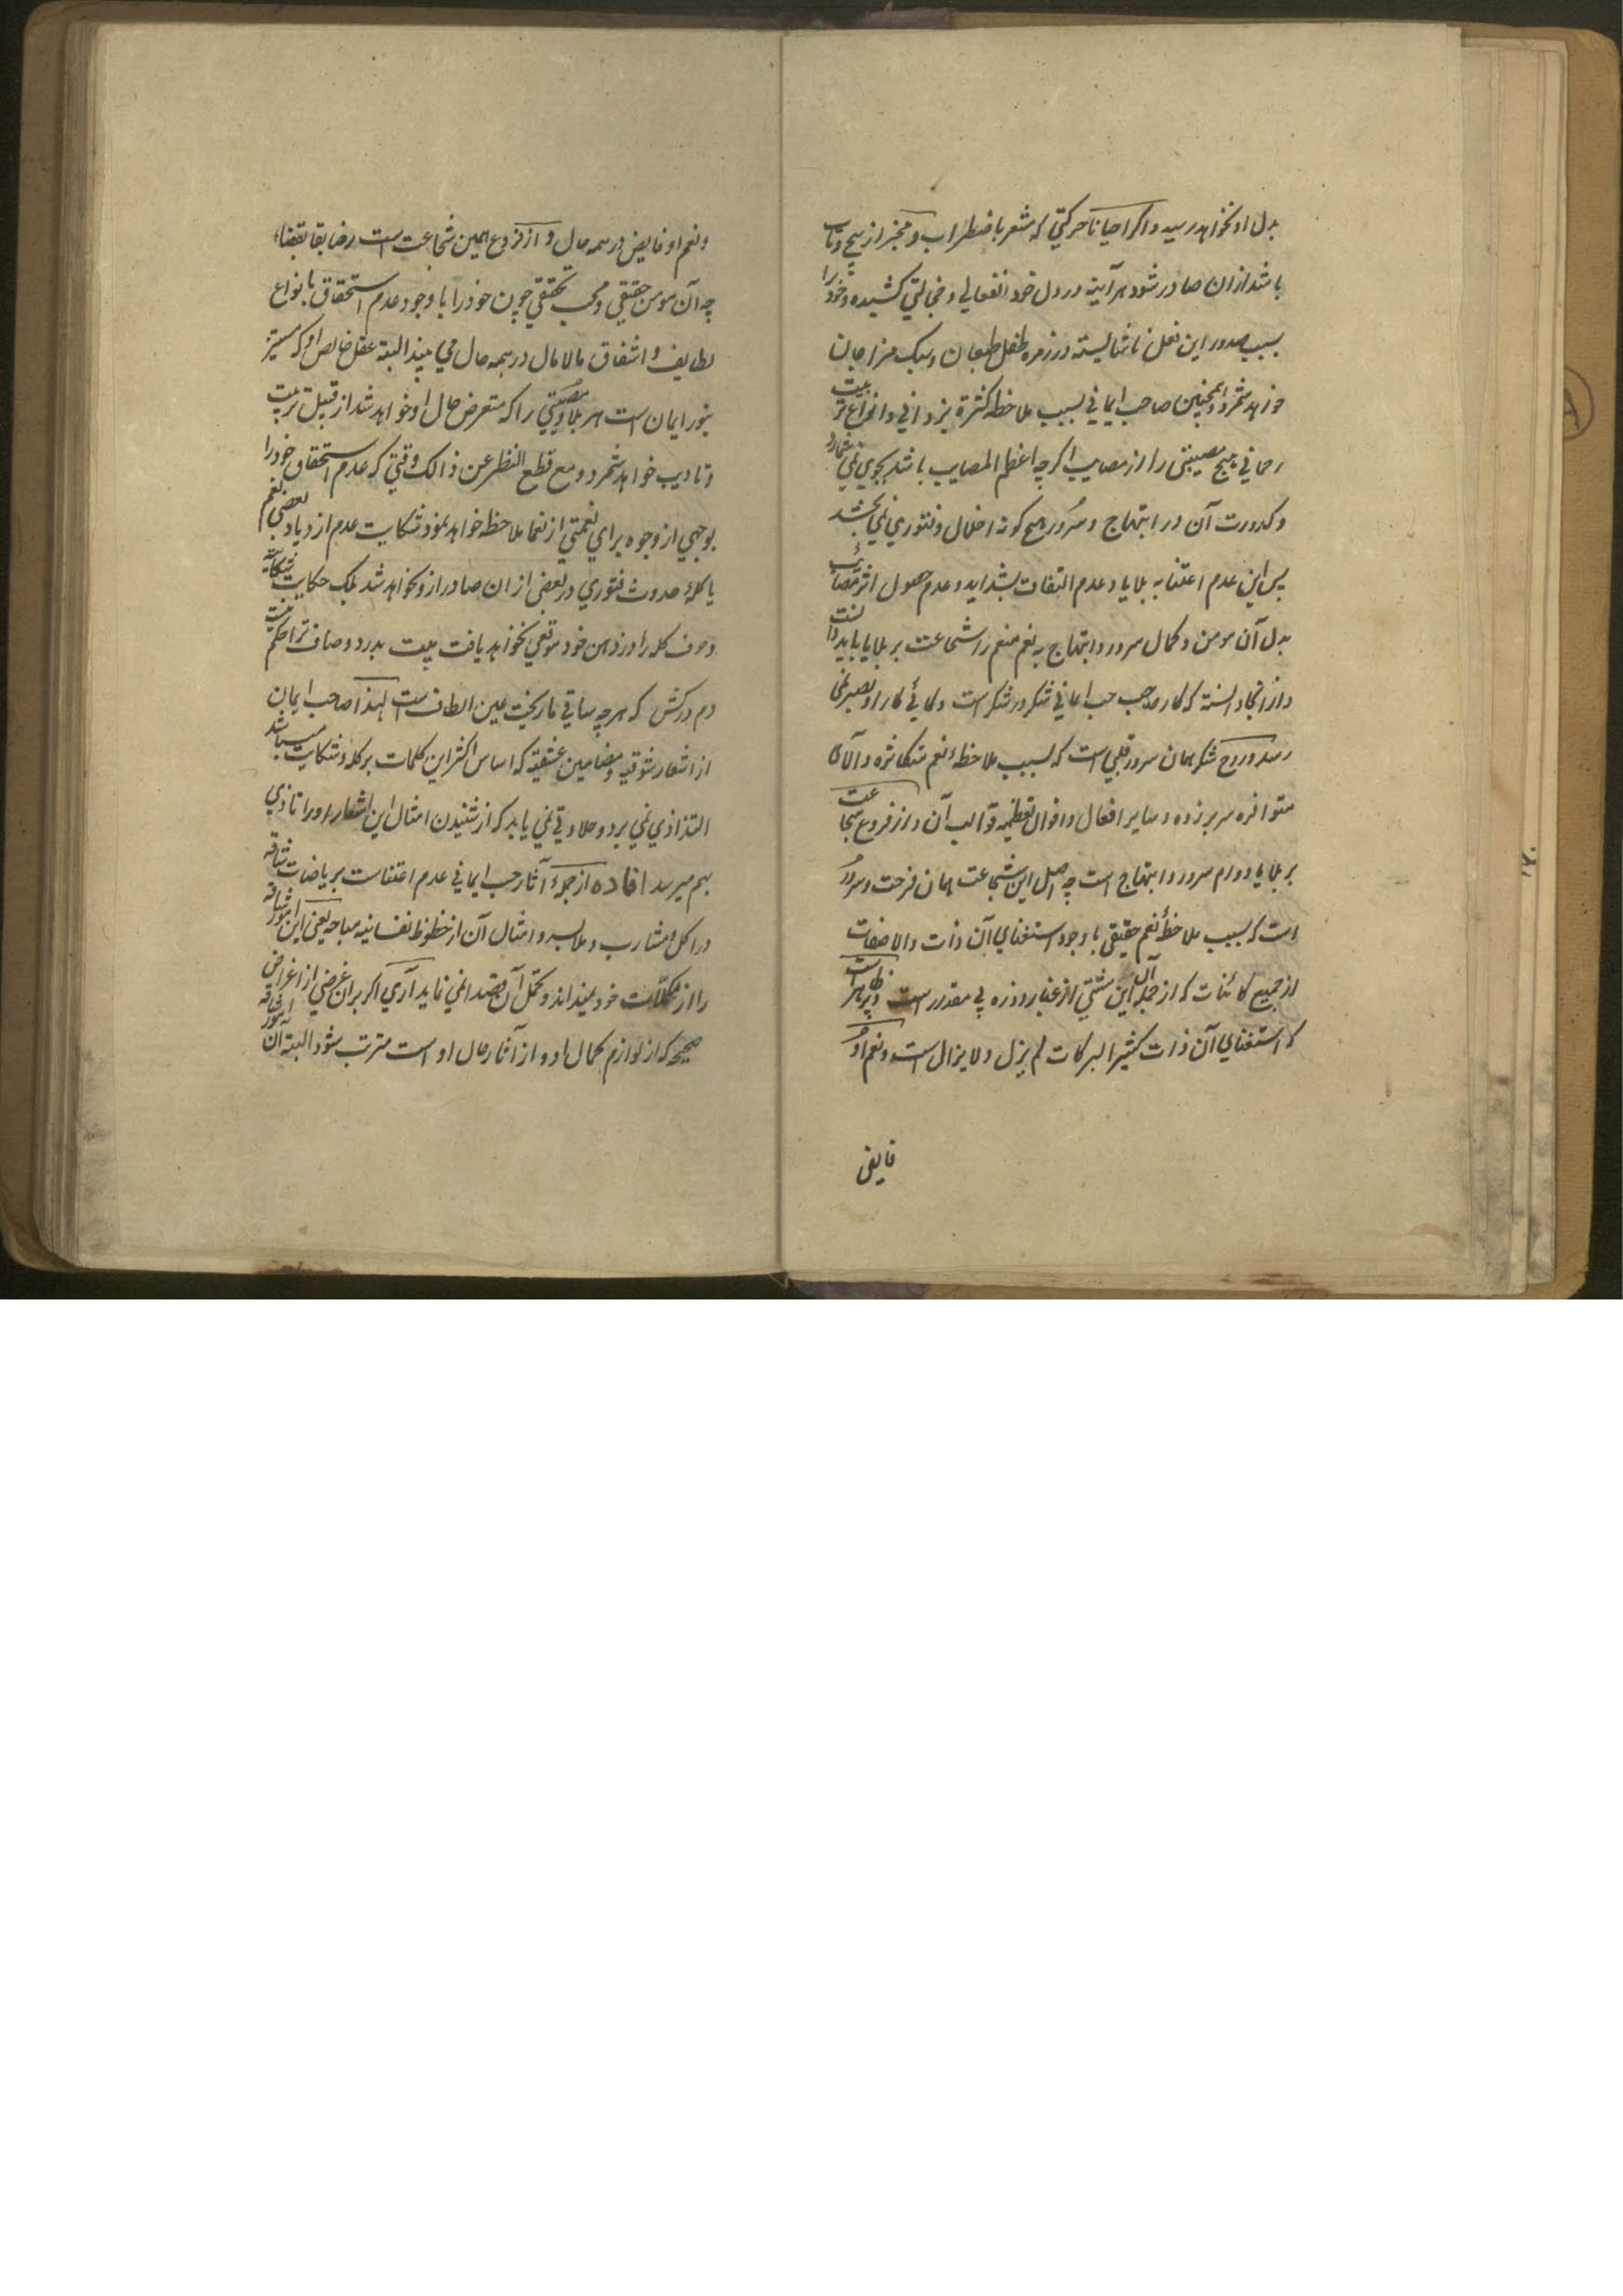 بدل او نخواهد رسید و اگر احیانا حرکتی که مشعر باضطراب و مخبر از پیچ و تاب
باشد ازان صادر شود هر آینه در دل خود انفعالی و خجالتی کشیده و خود را
بسبب صدور این فعل ناشایسته در زمره طفل طبعان و سبک مزاجان
خواهد شمرد و همچنین صاحب ایمانی بسبب ملاحظه کثرة یزدانی و انواع تربیت
رحمانی هیچ مصیبتی را از مصایب اگرچه اعظم المصایب باشد بجوی نمی شمارد
و کدورت آن در ابتهاج و سرور هیچ گونه اخلال و فتوری نمی بخشد
پس این عدم اعتنا به بلایا و عدم التفات بشداید و عدم حصول اثر مصائب
بدل آن مومن و کمال سرور و ابتهاج به نعم منعم را شجاعت بر بلایا باید دانست
و از انجا دانسته که کار صاحب حب ایمانی شکر در شکر است و گاهی کار او بصبر نمی
رسد و روح شکر همان سرور قلبی است که بسبب ملاحظهٔ نعم متکاثره و آلای
متوافره سر بر زده و سایر افعال و اقوال تعظیمیه قوالب آن و از فروع شجاعت
بر بلایا دوام سرور و ابتهاج است چه اصل این شجاعت همان فرحت و سرور
است که بسبب ملاحظهٔ نعم حقیقی با وجود استغنای آن ذات والا صفات
از جمیع کائنات که از جمله آن این مشتی از غبار و ذره بی مقدار است و پر ظاهر است
که استغنای آن ذات کثیر البرکات لم یزل و لا یزال است و نعم او
فایض
ونعم او فایض در همه حال و از فروع همین شجاعت است رضا بقا بقضاء
چه آن مومن حقیقی و محب تحقیقی چون خود را با وجود عدم استحقاق بانواع
لطایف و اشفاق مالامال در همه حال می بیند البته عقل خالص او که مستنیر
بنور ایمان است هر بلا و مصیبتی را که متعرض حال او خواهد شد از قبیل تربیت
و تادیب خواهد شمرد و مع قطع النظر عن ذالک وقتی که عدم استحقاق خود را
بوجهی از وجوه برای نعمتی از نعما ملاحظه خواهد نمود شکایت عدم ازدیاد بعضی نعم
یا گلهٔ حدوث فتوری در بعضی ازان صادر ازو نخواهد شد بلک حکایت شکایت
و حرف گله را در ذهن خود موقعی نخواهد یافت بیت بدرد و صاف ترا حکم نیست
دم درکش که هر چه ساقی ما ریخت عین الطاف است لهذا صاحب ایمان
از اشعار شوقیه و مضامین عشقیه که اساس اکثر این کلمات بر گله و شکایت میباشد
التذاذی نمی برد و حلاوتی نمی یابد که از شنیدن امثال این اشعار او را تاذی
بهم میرسد افاده از جملهٔ آثار حب ایمانی عدم اعتناست بریاضات شاقه
در اکل و مشارب و ملابس و امثال آن از حظوظ نفسانیه مباحه یعنی این امور شاقه
را از مکملات خود نمیداند و تحمل آن قصدا نمی نماید آری اگر بران غرضی از اغراض
صحیحه که از لوازم کمال او و از آثار حال او است مترتب شود البته آن امور شاقه